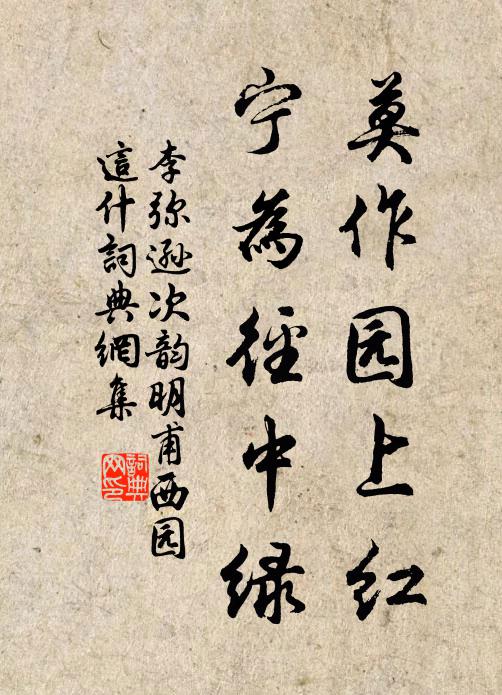 莫作园上红
宁為徑中绿
李弥逊次韵明甫西园
這什詞典網集
詞典
网印